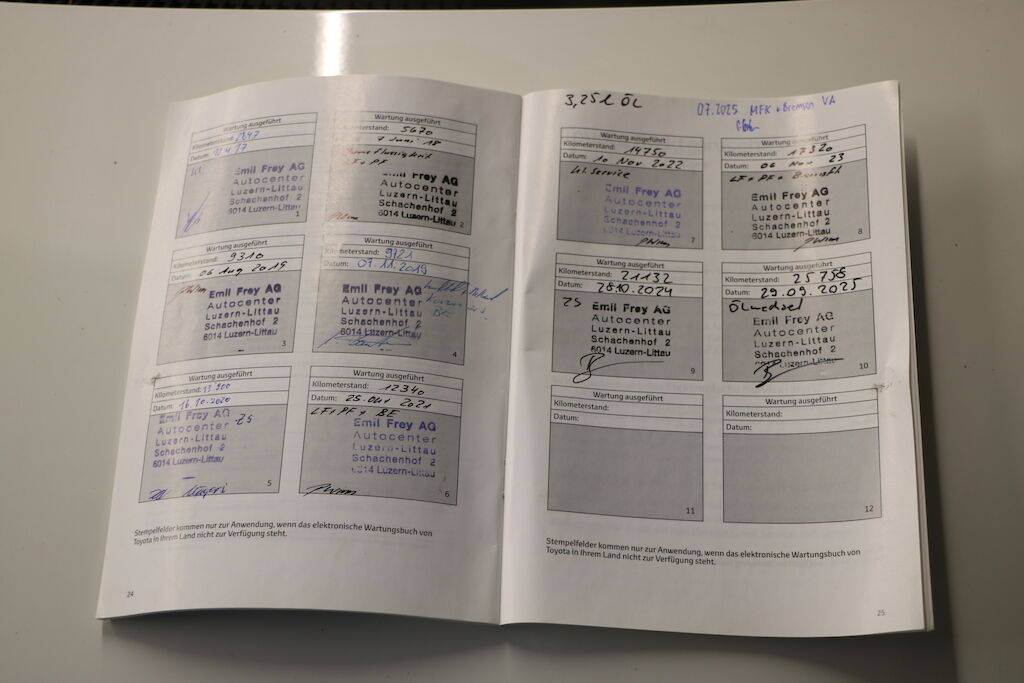 Wartung ausgeführt
Kilometerstand: 2647
Datum:
Emil Frey AG
Autocenter
Luzern-Littau
Schachenhof 2
6014 Luzern-Littau
1
Wartung ausgeführt
Kilometerstand: 5670
7 Juni 18
Bremsflüssigkeit
PF
Emil Frey AG
Autocenter
Luzern-Littau
Schachenhof 2
6014 Luzern-Littau
2
Wartung ausgeführt
Kilometerstand: 9310
Datum: 06 Aug 2019
Emil Frey AG
Autocenter
Luzern-Littau
Schachenhof 2
6014 Luzern-Littau
3
Wartung ausgeführt
Kilometerstand: 9721
Datum: 07.11.2019
Emil Frey AG
Autocenter
Luzern-Littau
Schachenhof 2
6014 Luzern-Littau
4
Wartung ausgeführt
Kilometerstand:
Datum: 16.10.2020
Emil Frey AG ZS
Autocenter
Luzern-Littau
Schachenhof 2
6014 Luzern-Littau
5
Wartung ausgeführt
Kilometerstand: 12340
Datum: 25. Okt 2021
LF+PF+ BE
Emil Frey AG
Autocenter
Luzern-Littau
Schachenhof 2
6014 Luzern-Littau
6
Stempelfelder kommen nur zur Anwendung, wenn das elektronische Wartungsbuch von
Toyota in Ihrem Land nicht zur Verfügung steht.
24
3,25l ÖL
07.2025 MFK + Bremsen VA
Wartung ausgeführt
Kilometerstand: 14750
Datum: 10 Nov 2022
kl. Service
Emil Frey AG
Autocenter
Luzern-Littau
Schachenhof 2
6014 Luzern-Littau
7
Wartung ausgeführt
Kilometerstand: 17520
Datum: 06 Nov 23
LF+PF+ Bremsfl
Emil Frey AG
Autocenter
Luzern-Littau
Schachenhof 2
6014 Luzern-Littau
8
Wartung ausgeführt
Kilometerstand: 21132
Datum: 28.10.2024
ZS
Emil Frey AG
Autocenter
Luzern-Littau
Schachenhof 2
6014 Luzern-Littau
9
Wartung ausgeführt
Kilometerstand: 25758
Datum: 29.09.2025
Ölwechsel
Emil Frey AG
Autocenter
Luzern-Littau
Schachenhof 2
6014 Luzern-Littau
10
Wartung ausgeführt
Kilometerstand:
Datum:
11
Wartung ausgeführt
Kilometerstand:
Datum:
12
Stempelfelder kommen nur zur Anwendung, wenn das elektronische Wartungsbuch von
Toyota in Ihrem Land nicht zur Verfügung steht.
25